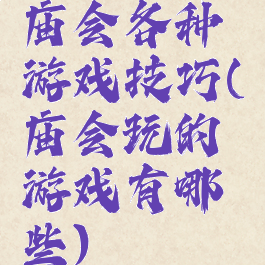 庙会各种
游戏技巧(
庙会玩的
游戏有哪
些)